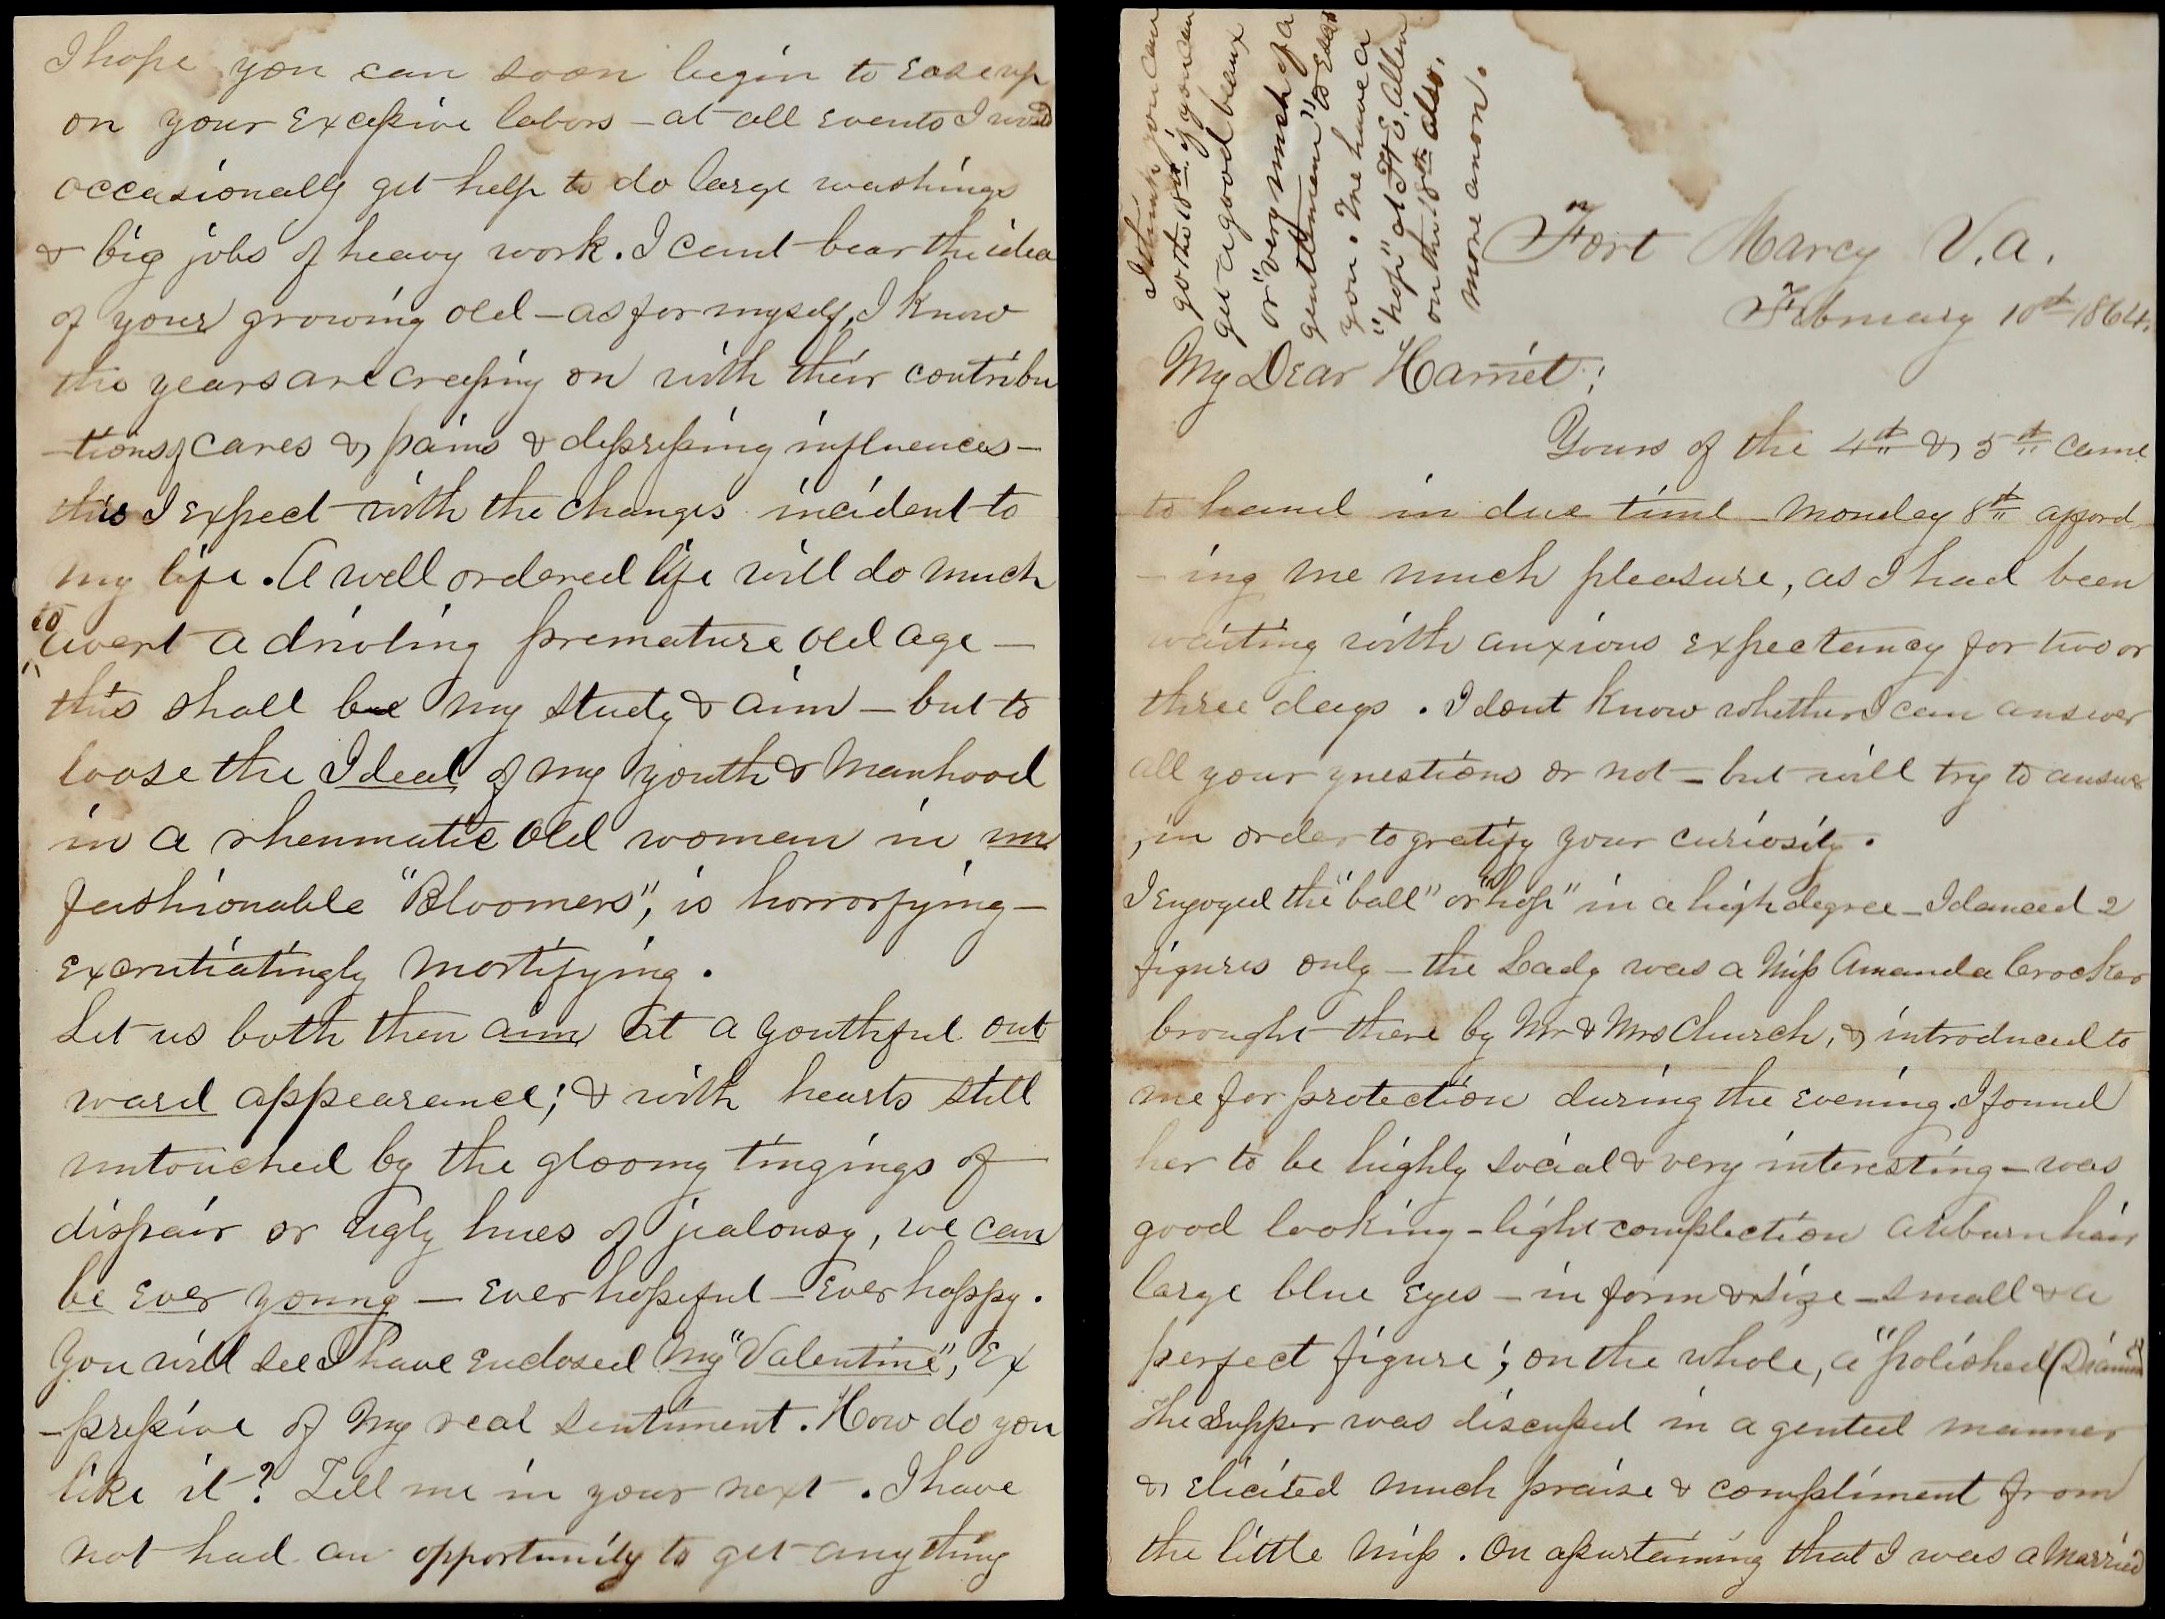 I hope you can soon begin to ease up
on your excessive labors - at all events I would
occasionally get help to do large washings
& big jobs of heavy work. I cant bear the idea
of your growing old - as for myself, I know
the years are creeping on with their contribu
-tions of cares & pains & depressing influences -
this I expect with the changes incident to
my life. A well ordered life will do much
to avert a driveling premature old age -
this shall be my study & aim - but to
loose the Ideal of my youth & manhood
in a rheumatic old woman in un
fashionable "Bloomers", is horrorfying -
excrutiatingly mortifying.
Let us both then aim at a youthful out
ward appearance; & with hearts still
untouched by the gloomy tingings of
dispair or ugly hues of jealousy, we can
be ever young - ever hopeful - ever happy.
You will see I have enclosed my "Valentine", Ex
-pressive of my real sentiment. How do you
like it? Tell me in your next. I have
not had an opportunity to get anything
I think you can
go the 18th if you can
get a good beaux
or "very much of a
gentleman" to
you. We have a
"hop" at Ft E. Allen
on the 18th also.
more anon.
Fort Marcy V.a.
February 10th 1864.
My Dear Harriet:
Yours of the 4th & 5th came
to hand in due time - monday 8th afford
-ing me much pleasure, as I had been
waiting with anxious expectency for two or
three days. I dont know whether I can answer
all your questions or not - but will try to answer
, in order to gratify your curiosity.
I engoyed the "ball" or "hop" in a high degree - I danced 2
figures only - the Lady was a Miss Amanda Crocker
brought there by Mr & Mrs Church, & introduced to
me for protection during the evening. I found
her to be highly social & very interesting - was
good looking - light complection auburn hair
large blue eyes - in form & size - small & a
perfect figure; on the whole, a "polished Diamond"
The Supper was discussed in a genteel manner
& elicited much praise & compliment from
the little miss. On assertaining that I was a married